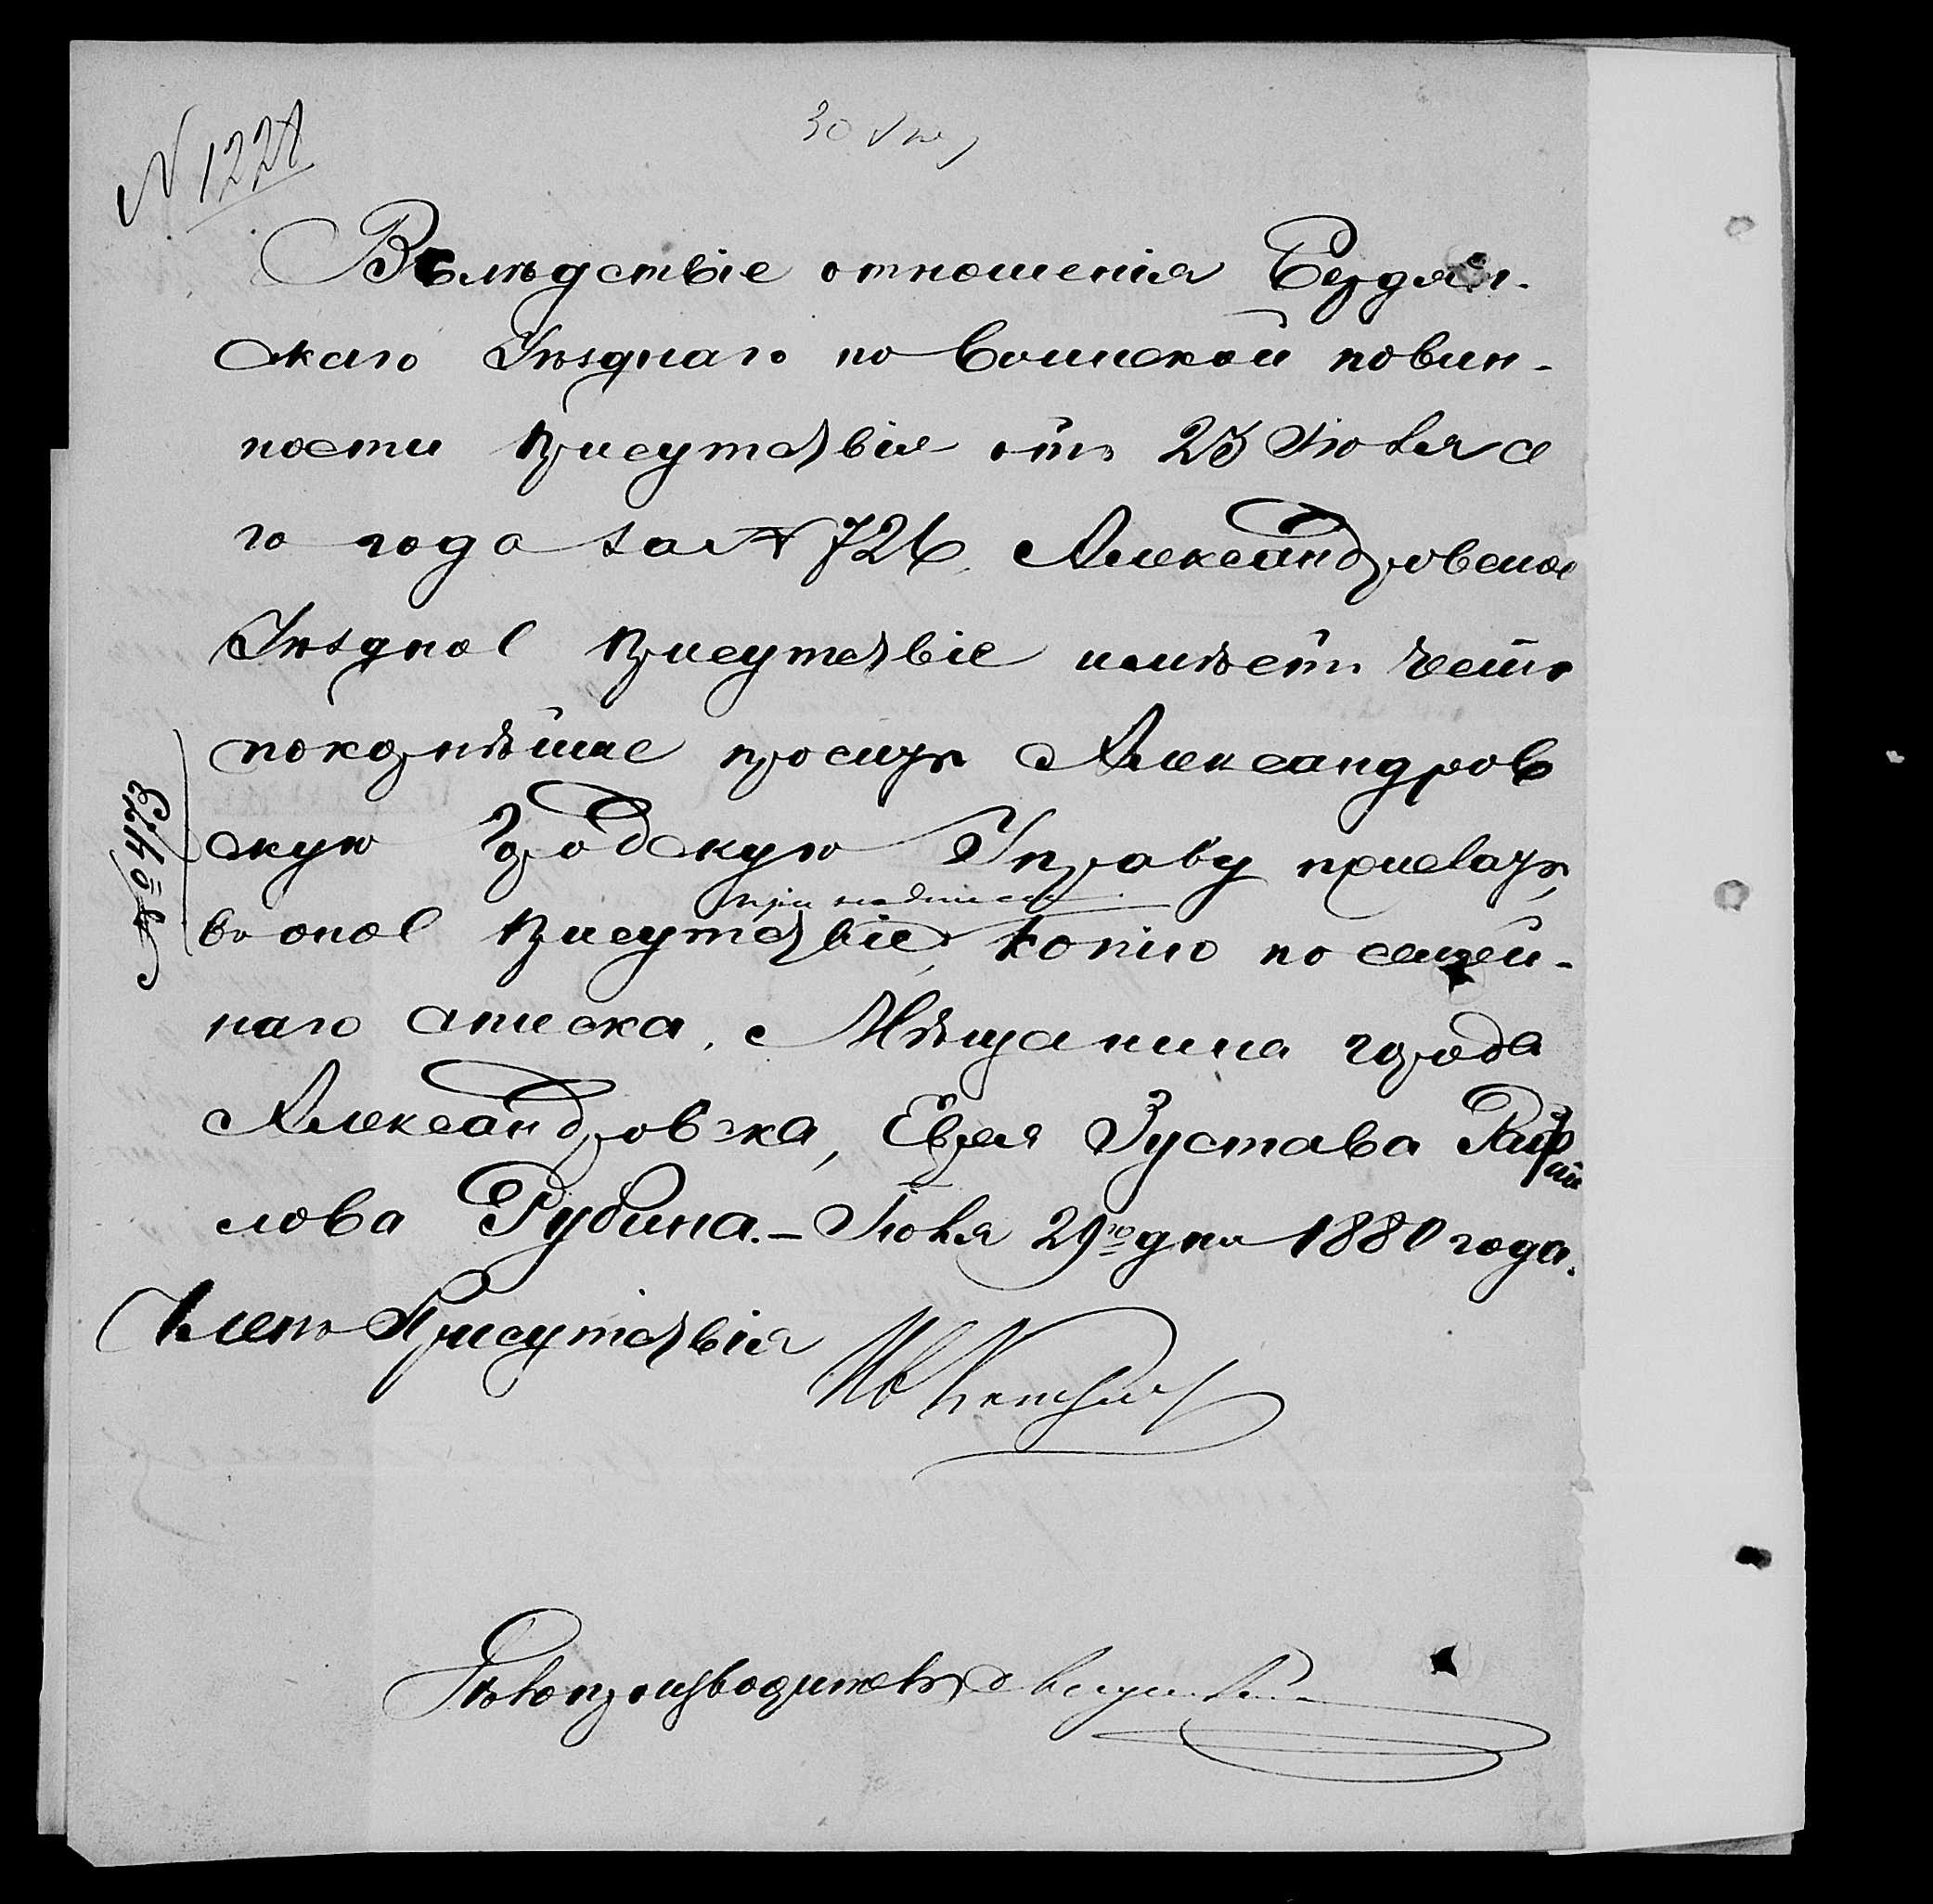 № 1221
Вслѣдствіе отношенія Бердян-
скаго Уѣзднаго по воинской повин-
ности Присутствія отъ 25 Іюля се
го года за № 726, Александровское
Уѣздное Присутствіе имѣетъ честь
покорнѣйше просить Александров
скую Городскую Управу прислать,
при надписи
въ оное Присутствіе, копію посемей-
наго списка, Мѣщанина города
Александровска, Еврея Густава Рафаи
лова Рубина. — Іюля 29го дня 1880 года.
Членъ Присутствія
Дѣлопроизводитель